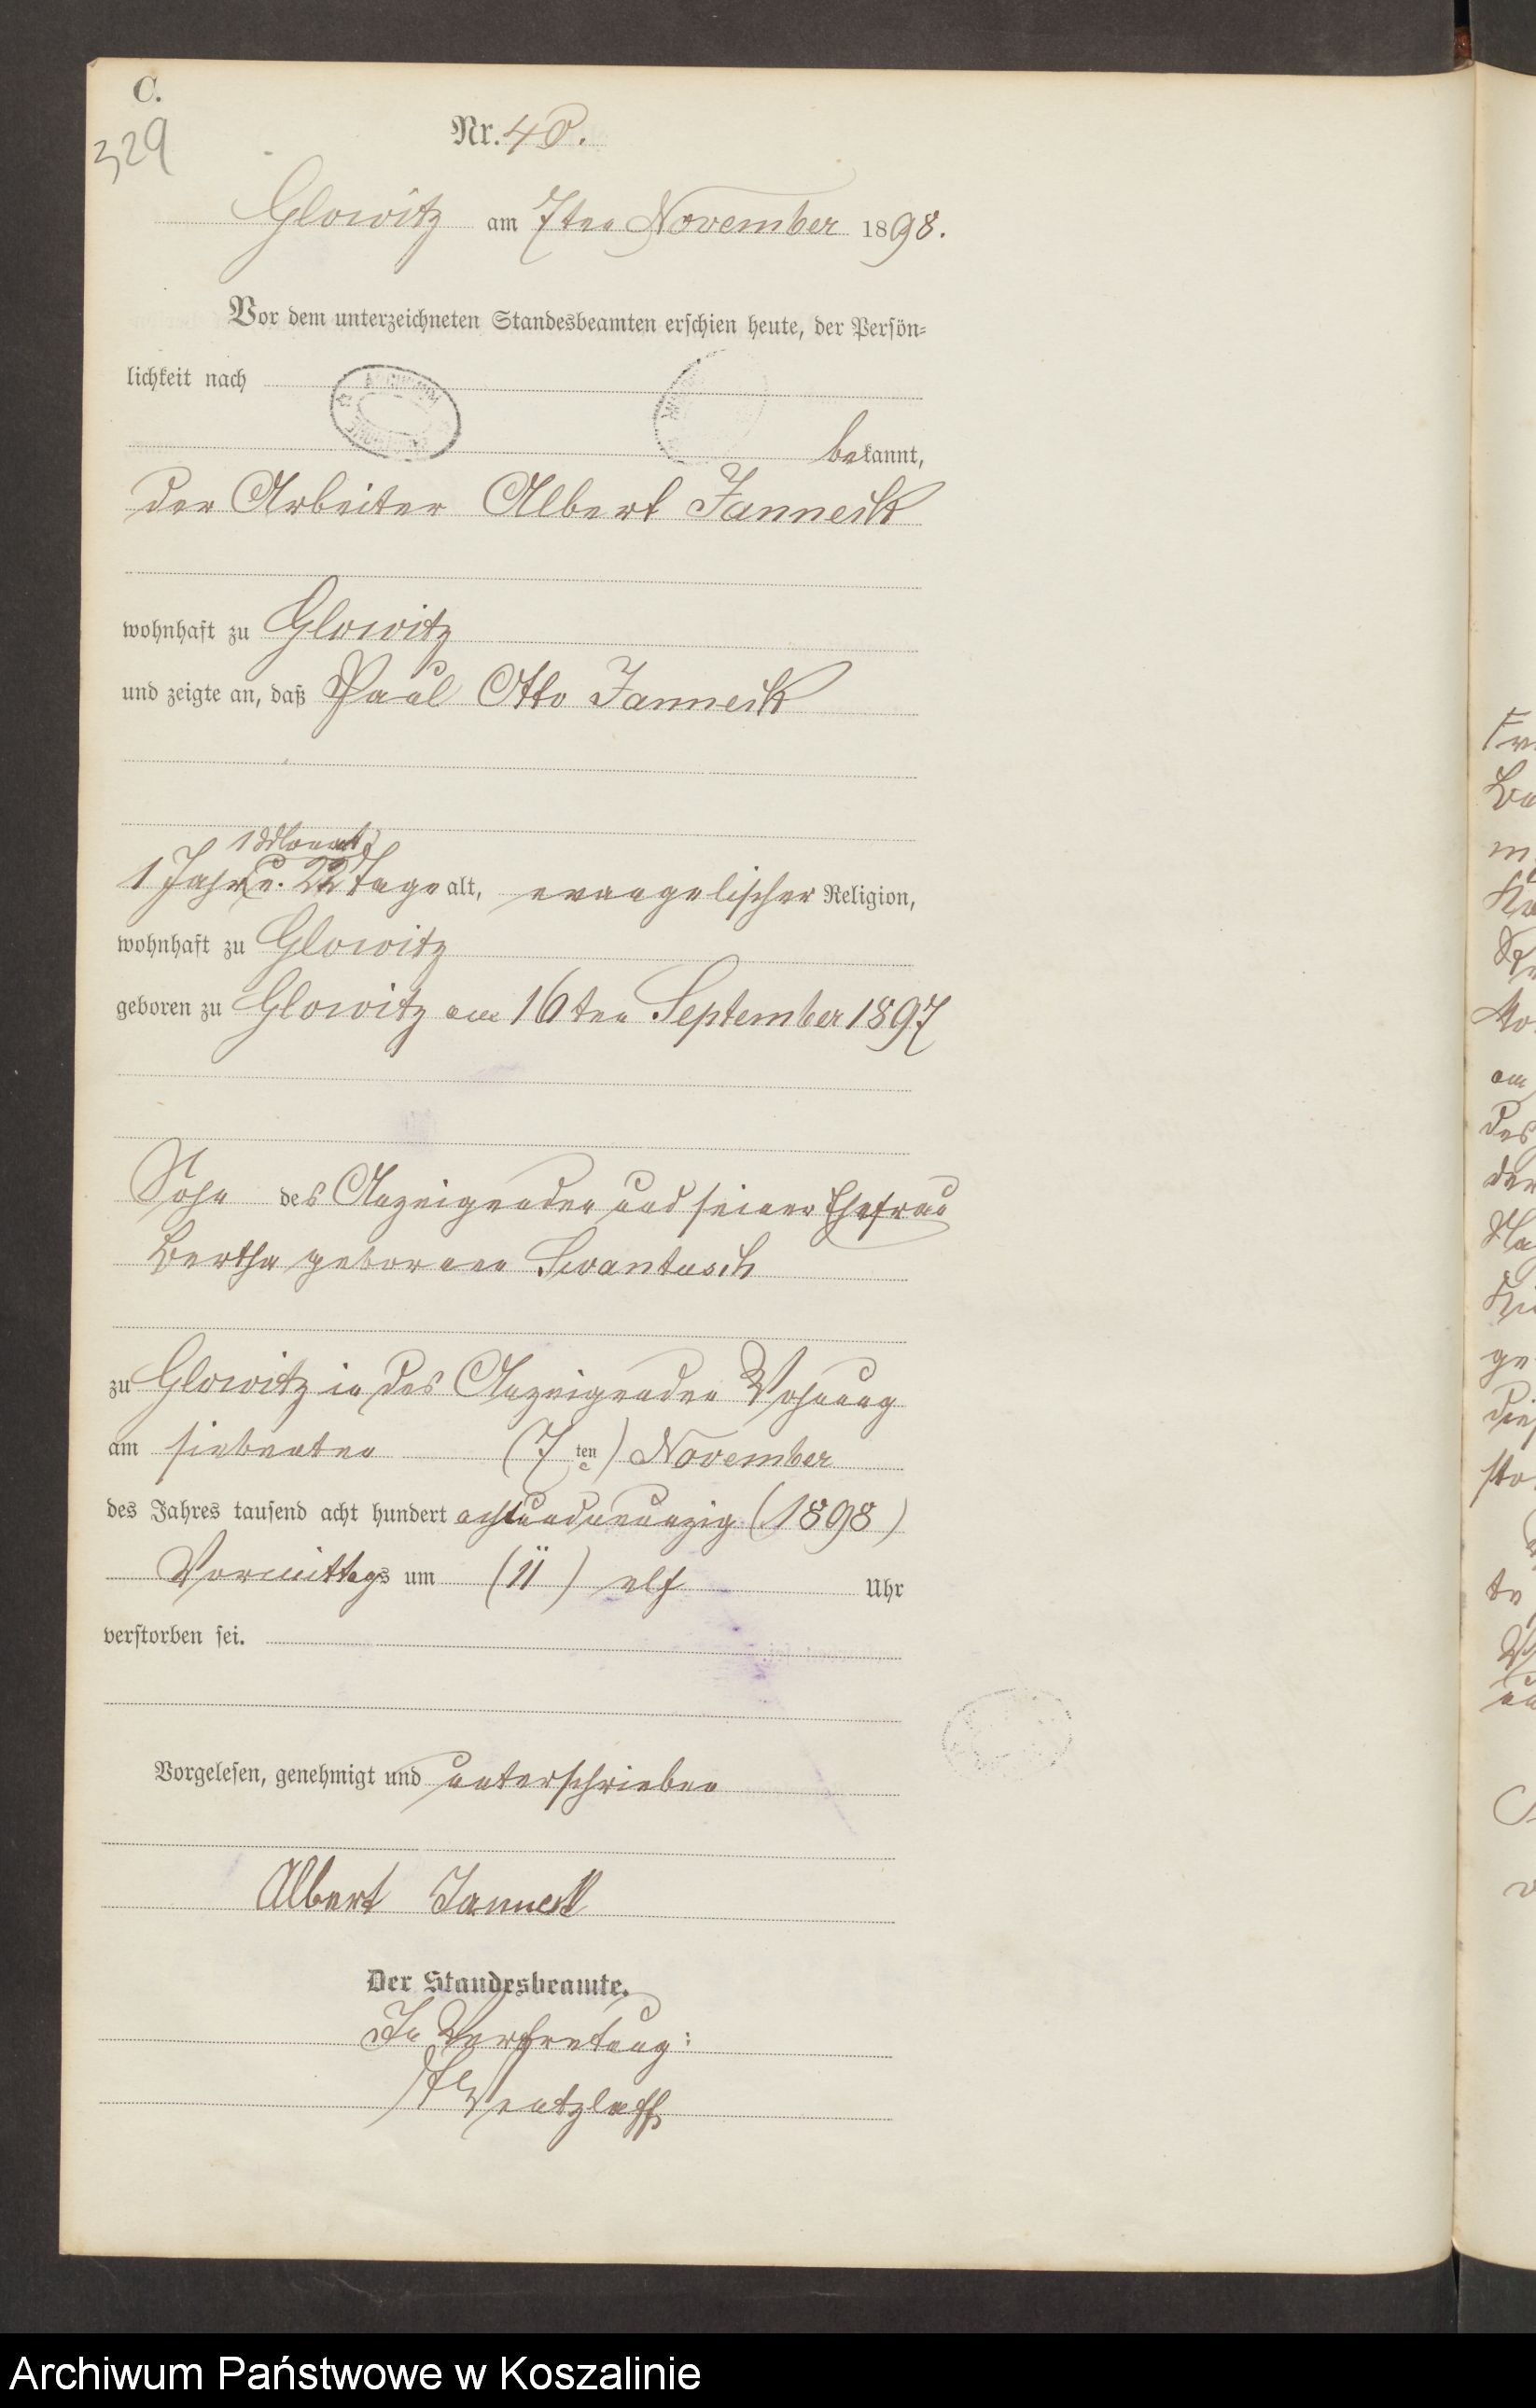 C.
329
Nr. 40.
Glowitz am 7ten November 1898.
Vor dem unterzeichneten Standesbeamten erschien heute, der Persön-
lichkeit nach
bekannt,
der Arbeiter Albert Janneck
wohnhaft zu Glowitz
und zeigte an, daß Paul Otto Janneck
1 Monat
1 Jahr u. 22 Tage alt, evangelischer Religion,
wohnhaft zu Glowitz
geboren zu Glowitz am 16ten September 1897
Sohn des Anzeigenden und seiner Ehefrau
Bertha geborenen Swantusch
zu Glowitz in des Anzeigenden Wohnung
am siebenten (7ten) November
des Jahres tausend acht hundert achtundneunzig (1898)
Vormittags um (11) elf Uhr
verstorben sei.
Vorgelesen, genehmigt und unterschrieben
Albert Janneck
Der Standesbeamte.
In Vertretung:
Wentzlaff
Archiwum Państwowe w Koszalinie